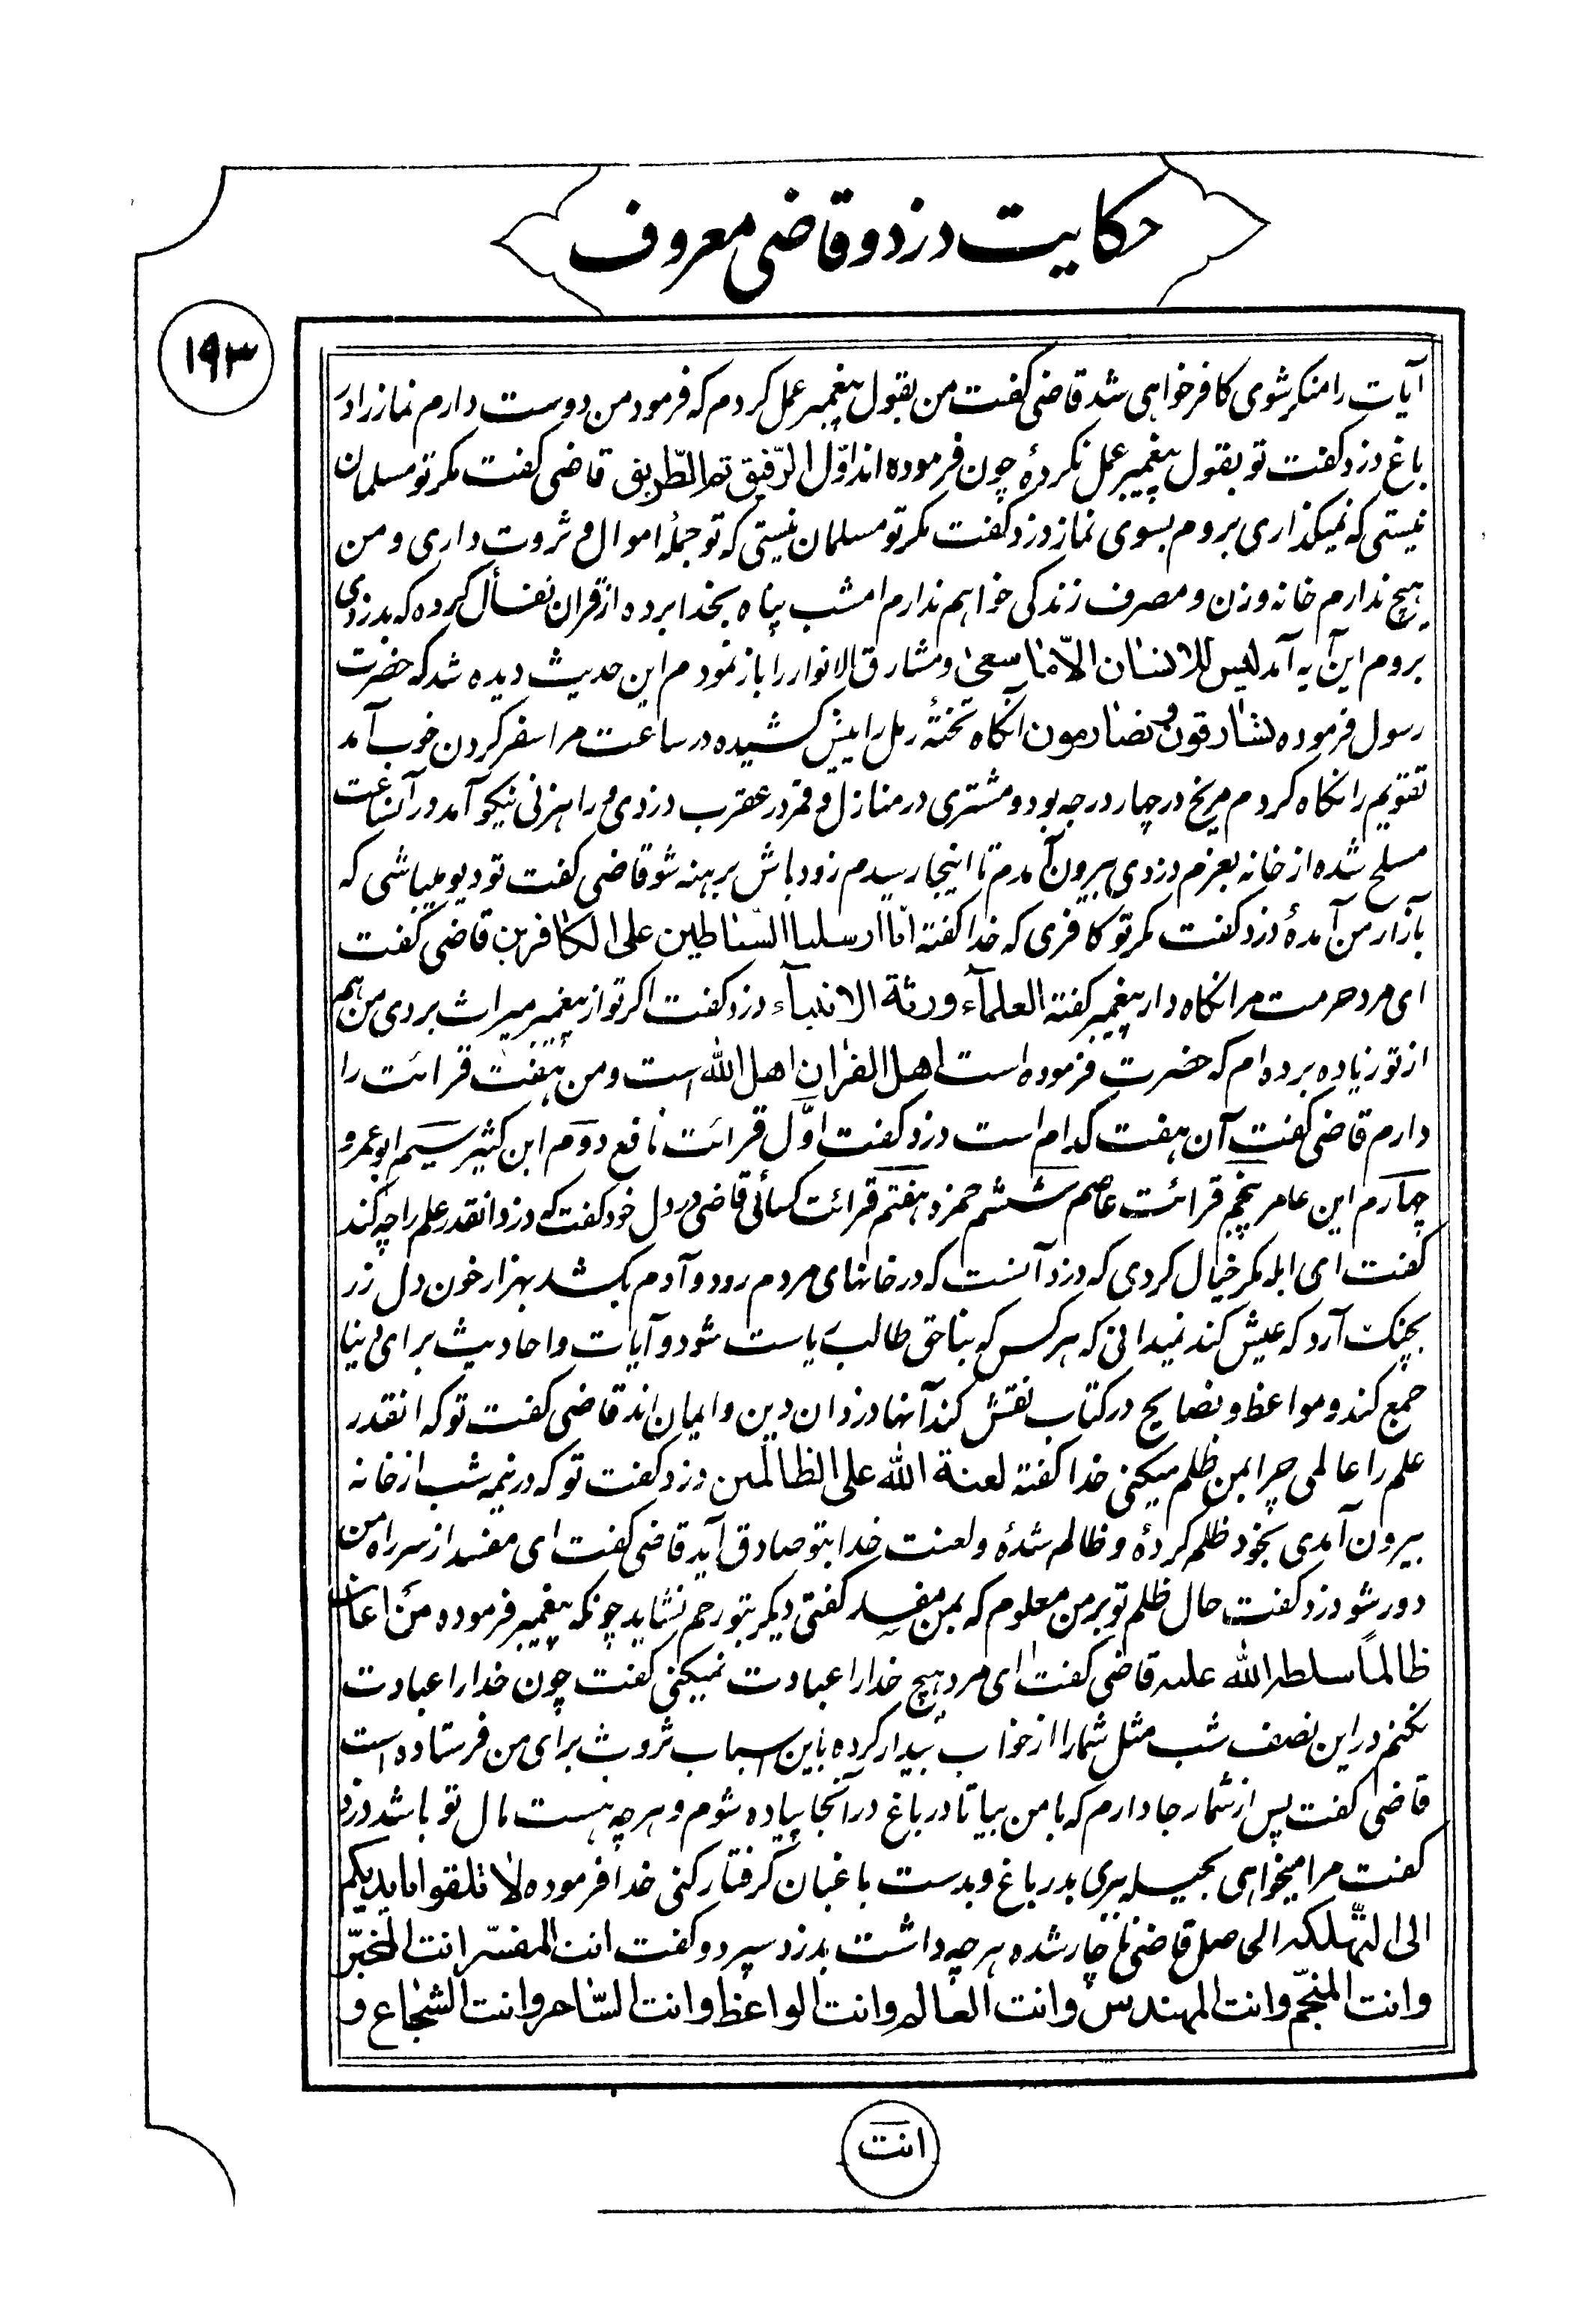 حکایت دزد و قاضی معروف
۱۹۳
آیات را منکر شوی کافر خواهی شد قاضی کفت من بقول پیغمبر عمل کردم که فرمود من دوست دارم نماز را در
باغ دزد کفت تو بقول پیغمبر عمل نکردهٔ چون فرموده اند اوّل الرّفیق ثم الطّریق قاضی کفت مکر تو مسلمان
نیستی که نمیکذاری بروم بسوی نماز دزد کفت مکر تو مسلمان نیستی که تو جملهٔ اموال و ثروت داری و من
هیچ ندارم خانه و زن و مصرف زندکی خواهم ندارم امشب پناه بخدا برده از قران تفأل کرده که بدزدی
بروم این آیه آمد لیس للانسان الّا ما سعی و مشارق الانوار را باز نمودم این حدیث دیده شد که حضرت
رسول فرموده تشارقون و تضارمون آنکاه تختهٔ رمل را پیش کشیده در ساعت مرا سفر کردن خوب آمد
تقویم را نکاه کردم مریخ در چهار درجه بود و مشتری در منازل و قمر در عقرب دزدی و راهزنی نیکو آمد در آنساعت
مسلح شده از خانه بعزم دزدی بیرون آمدم تا اینجا رسیدم زود باش برهنه شو قاضی کفت تو دیو میباشی که
بآزار من آمدهٔ دزد کفت مکر تو کافری که خدا کفته انّا ارسلنا الشّیاطین علی الکافرین قاضی کفت
ای مرد حرمت مرا نکاه دار پیغمبر کفته العلمآء ورثة الانبیآء دزد کفت اکر تو از پیغمبر میراث بردی من هم
از تو زیاده برده ام که حضرت فرموده است اهل القران اهل الله است و من هفت قرائت را
دارم قاضی کفت آن هفت کدام است دزد کفت اوّل قرائت نافع دوم ابن کثیر سیم ابو عمرو
چهارم ابن عامر پنجم قرائت عاصم ششم حمزه هفتم قرائت کسائی قاضی در دل خود کفت که دزد انقدر علم را چه کند
کفت ای ابله مکر خیال کردی که دزد آنست که در خانهای مردم رود و آدم بکشد بهزار خون دل زر
بچنک آرد که عیش کند نمیدانی که هر کس که بناحق طالب ریاست شود و آیات و احادیث برای دنیا
جمع کند و مواعظ و نصایح در کتاب نقش کند آنها دزدان دین و ایمان اند قاضی کفت تو که انقدر
علم را عالمی چرا بمن ظلم میکنی خدا کفته لعنة الله علی الظالمین دزد کفت تو که در نیمه شب از خانه
بیرون آمدی بخود ظلم کردهٔ و ظالم شدهٔ و لعنت خدا بتو صادق آید قاضی کفت ای مفسد از سر راه من
دور شو دزد کفت حال ظلم تو بر من معلوم که بمن مفسد کفتی دیکر بتو رحم نشاید چونکه پیغمبر فرموده من اعان
ظالماً سلطه الله علیه قاضی کفت ای مرد هیچ خدا را عبادت نمیکنی کفت چون خدا را عبادت
نکنم در این نصف شب مثل شما را از خواب بیدار کرده باین اسباب ثروث برای من فرستاده است
قاضی کفت پس از شما رجا دارم که با من بیا تا در باغ در آنجا پیاده شوم و هر چه هست مال تو باشد دزد
کفت مرا میخواهی بحیله ببری بدر باغ و بدست باغبان کرفتار کنی خدا فرموده لا تلقوا بایدیکم
الی التّهلکه الی صل قاضی نا چار شده هر چه داشت بدزد سپرد و کفت انت المفسّر انت المخبّر
و انت المنجّم و انت المهندس و انت العالم و انت الواعظ و انت السّاحر و انت الشجاع و
انت